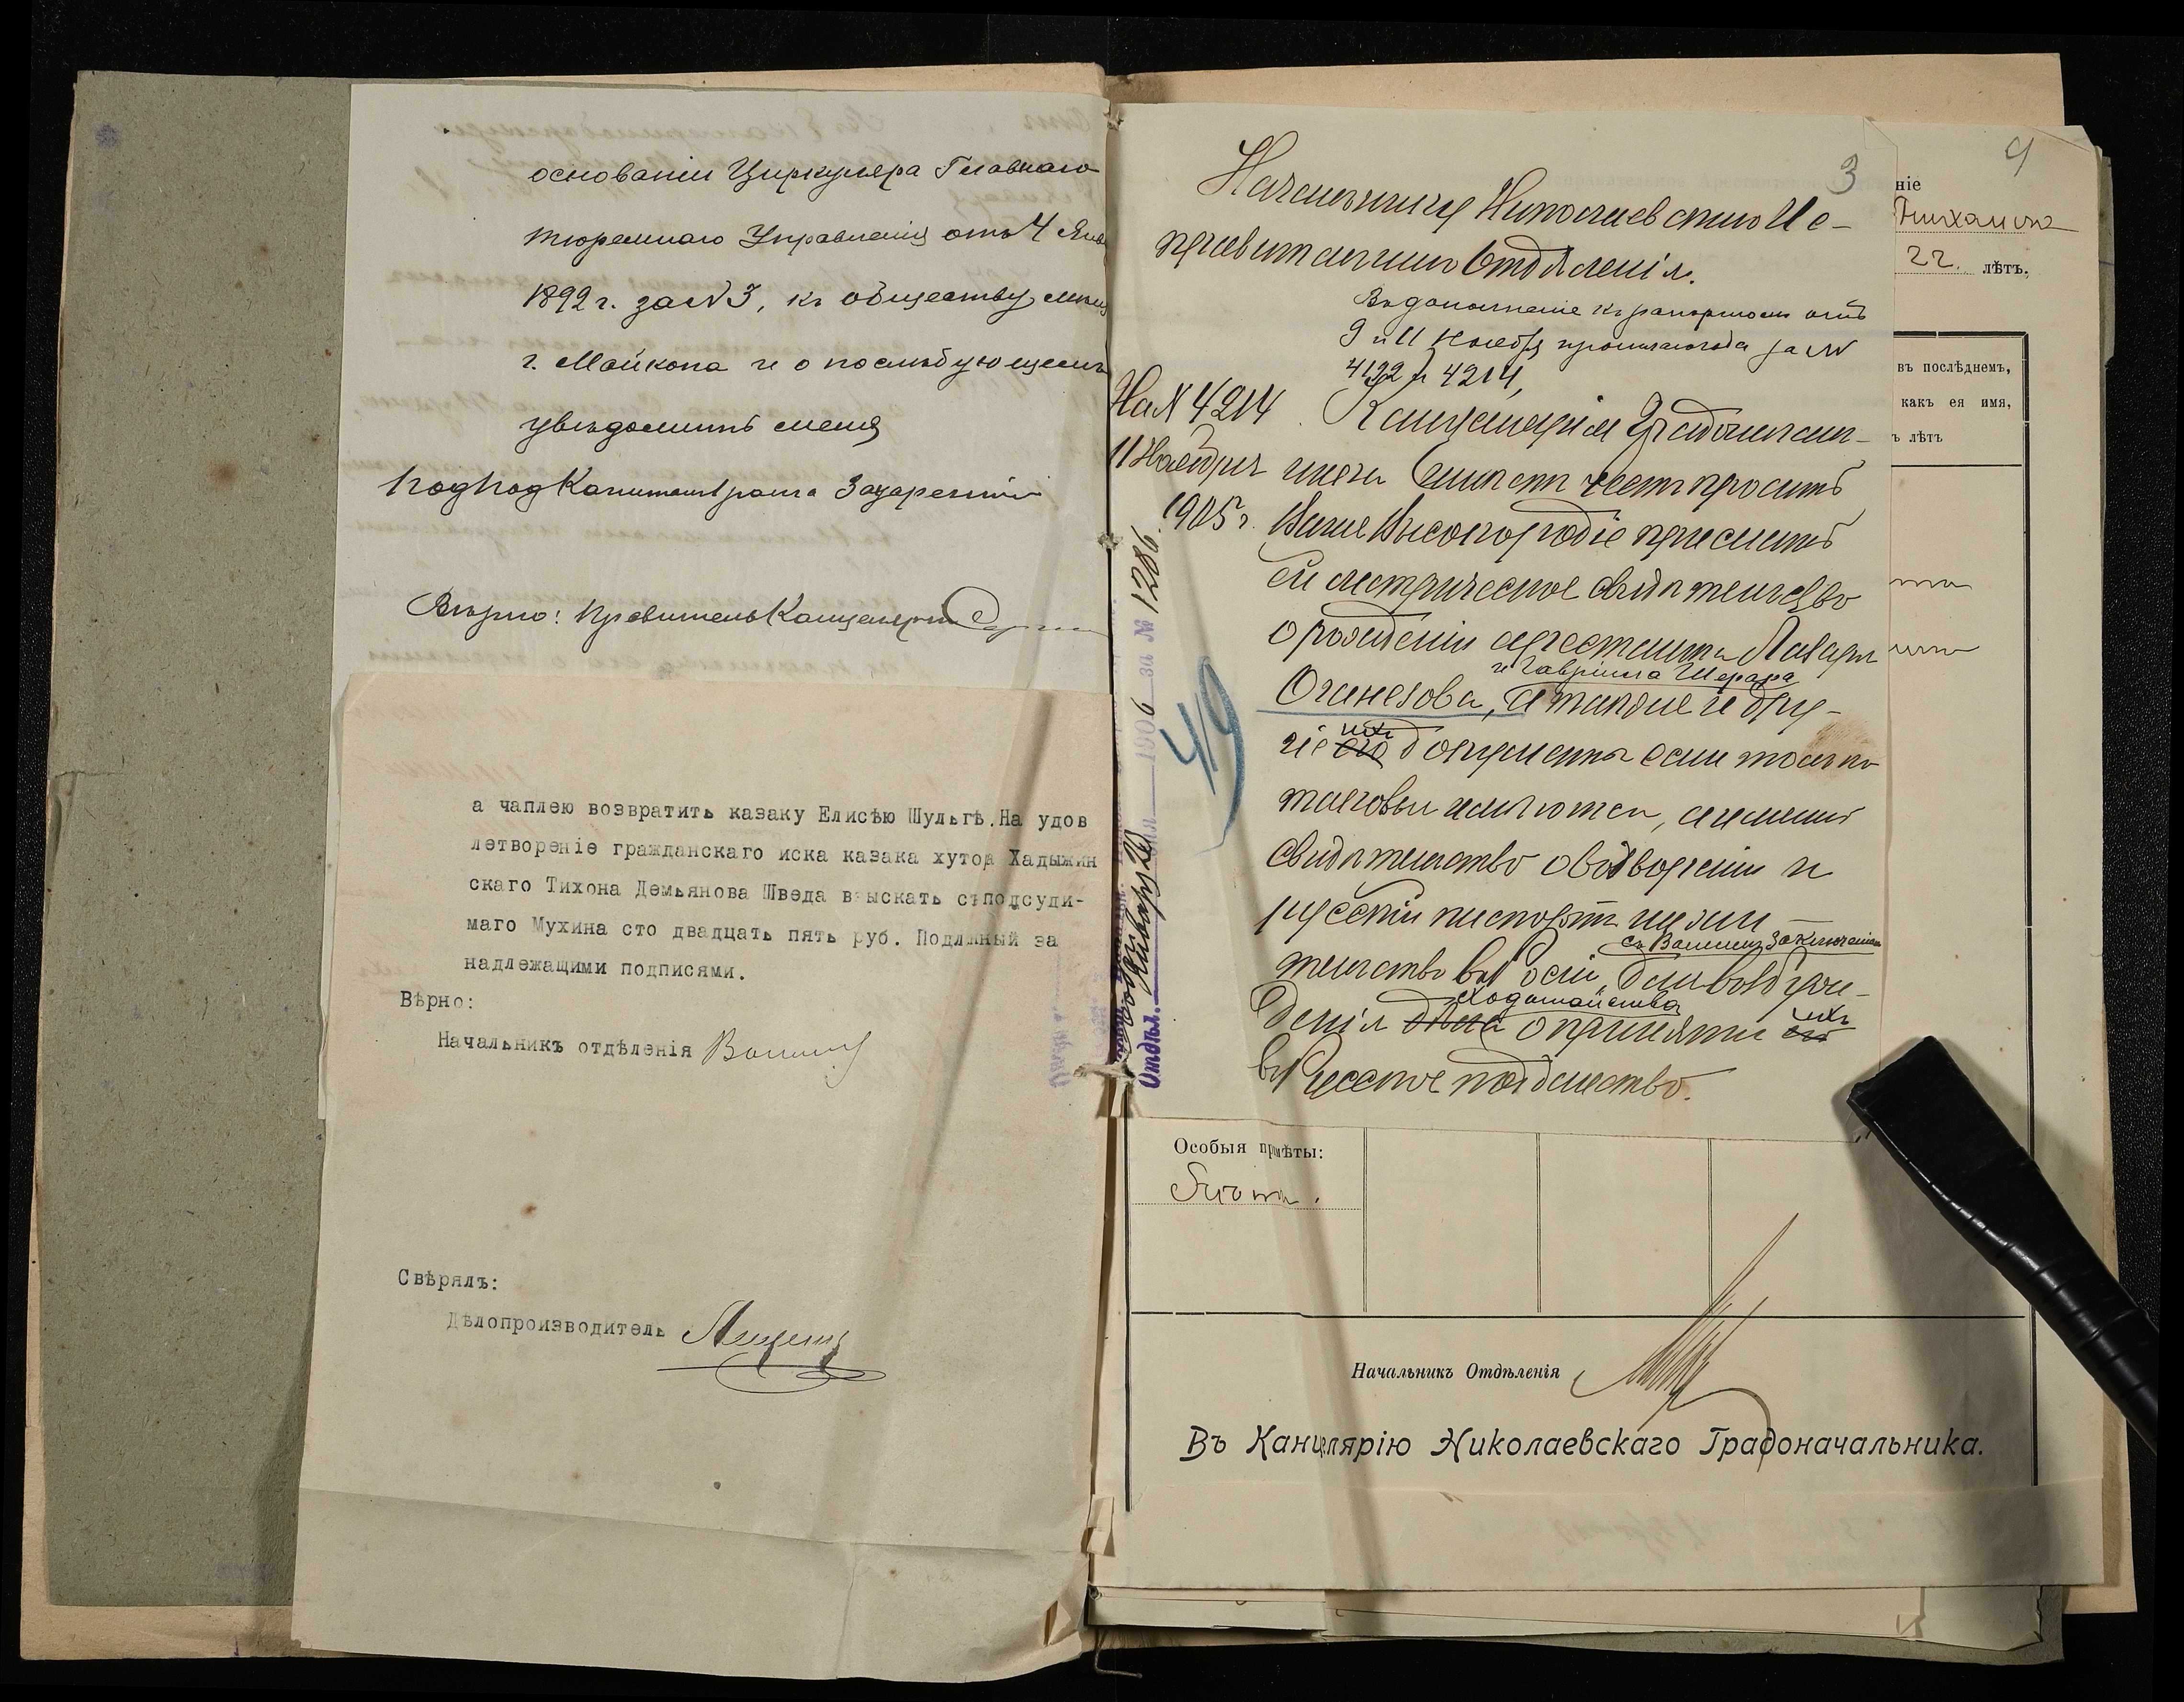 основаніи Циркуляра Главнаго
тюремнаго Управленія отъ 4 Янв
1892 г. за № 3, къ обществу мѣщ
г. Майкопа и о послѣдующемъ
увѣдомить меня
Вѣрно: Правитель Канцеляріи
а чаплею возвратить казаку Елисѣю Шульгѣ. На удов
летвореніе гражданскаго иска казака хутора Хадыжин
скаго Тихона Демьянова Шведа взыскать съ подсуди-
маго Мухина сто двадцать пять руб. Подлинный за
надлежащими подписями.
Вѣрно:
Начальникъ отдѣленія
Свѣрялъ:
Дѣлопроизводитель
3
Начальнику Николаевскаго Ис-
правительнаго Отдѣленія.
Въ дополненіе къ рапортамъ отъ
9 и 11 Ноября прошлаго года за №
4192 и 4214,
На № 4214
11 Ноября
1905 г.
Канцелярія Градоначаль-
ника имѣетъ честь просить
Ваше Высокородіе прислать
ей метрическое свидѣтельство
о рожденіи арестанта Лазаря
и Гавріила Шрара
Оганезова, а также и дру-
гіе ихъ документы если только
таковые имѣются, а именно
свидѣтельство о водвореніи и
русскій паспортъ на жи-
тельство въ Росіи, съ Вашимъ заключеніемъ для возбуж-
денія ходатайства о принятіи ихъ
въ Русское подданство.
49
Отдѣл. Января 20 1906 за № 1286
9
ніе
22. лѣтъ.
въ послѣднемъ,
какъ ея имя,
ъ лѣтъ
Особыя примѣты:
Начальникъ Отдѣленія
Въ Канцелярію Николаевскаго Градоначальника.